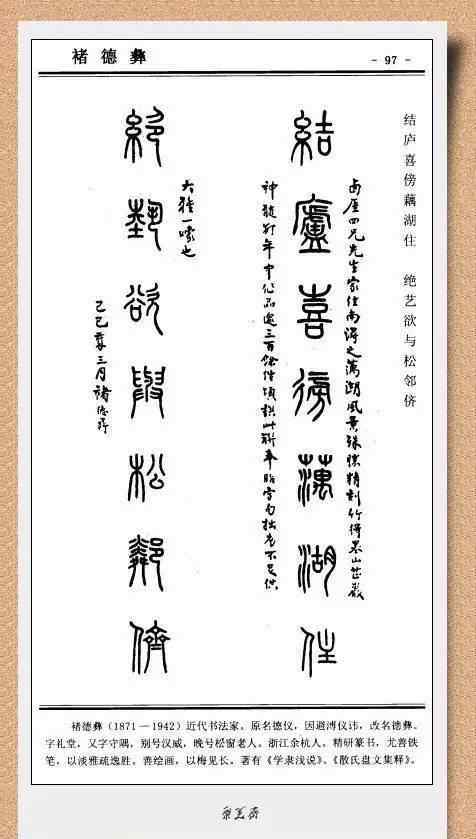 褚德彝
- 97 -
结庐喜傍藕湖住 绝艺欲与松邻侪
結廬喜傍藕湖住
四兄先生家住南潯之藕湖風景殊勝精刻竹得
年中作品逾三百餘件頃撰此聯奉貽字句拙劣不足供
大雅一噱也
絕藝欲與松鄰儕
己巳春三月褚德彝
褚德彝(1871—1942)近代书法家。原名德仪，因避溥仪讳，改名德彝。
字礼堂，又字守隅，别号汉威，晚号松窗老人。浙江余杭人。精研篆书，尤善铁
笔，以淡雅疏逸胜。善绘画，以梅见长。著有《学隶浅说》、《散氏盘文集释》。